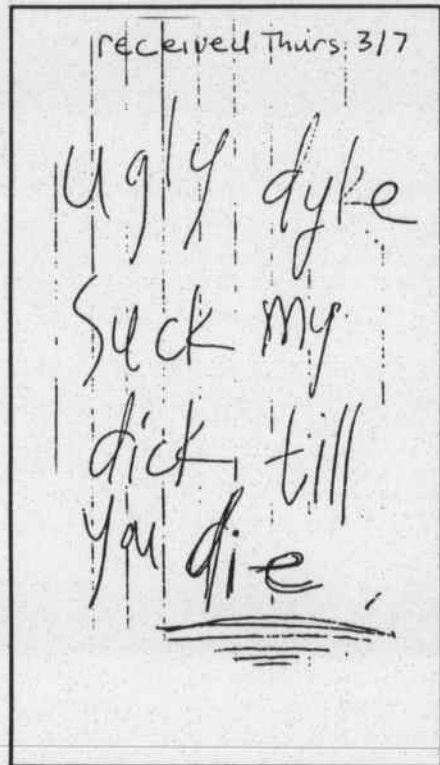 received Thurs. 3/7
ugly dyke
suck my
dick, till
you die.